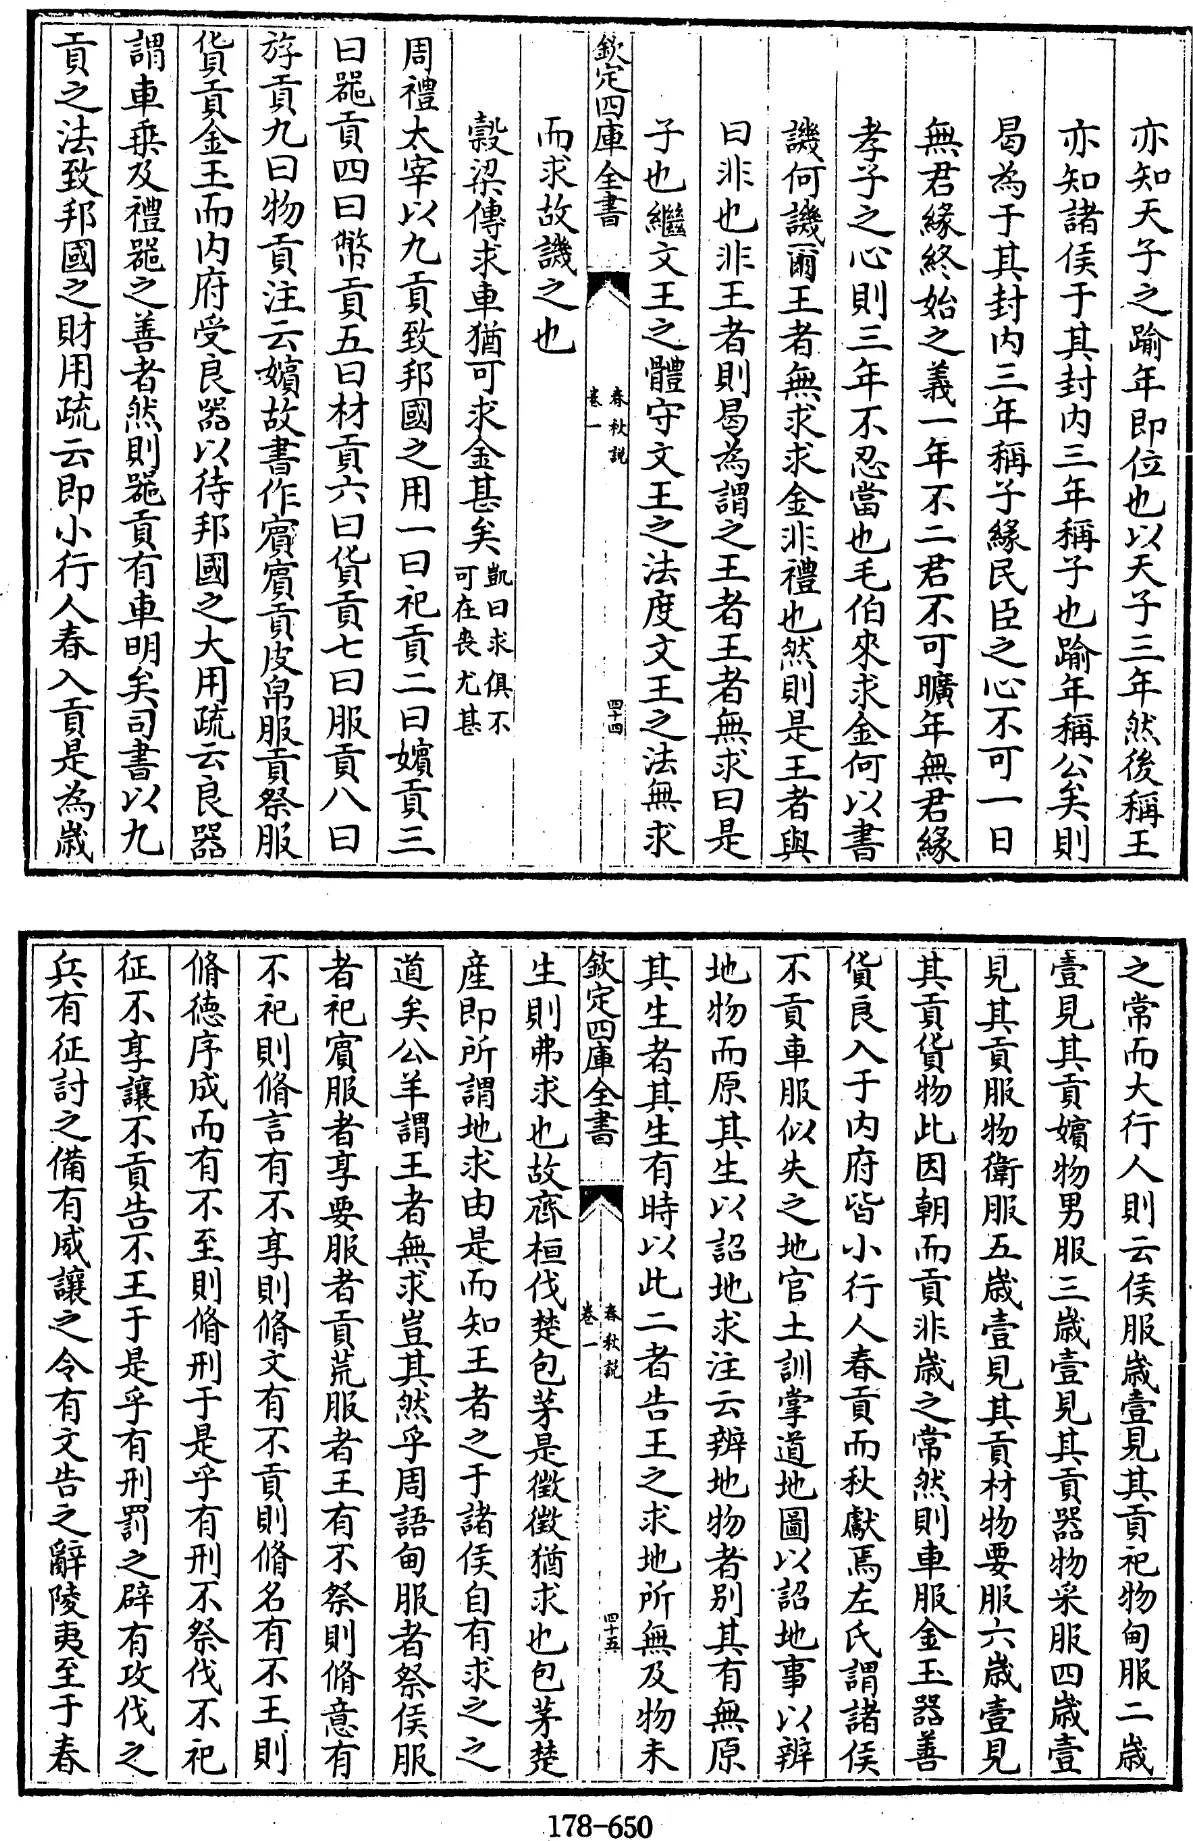 亦知天子之踰年即位也以天子三年然後稱王
亦知諸侯于其封内三年稱子也踰年稱公矣則
曷為于其封内三年稱子緣民臣之心不可一日
無君緣終始之義一年不二君不可曠年無君緣
孝子之心則三年不忍當也毛伯來求金何以書
譏何譏爾王者無求求金非禮也然則是王者與
曰非也非王者則曷為謂之王者王者無求曰是
子也繼文王之體守文王之法度文王之法無求
欽定四庫全書
春秋說
卷一
四十四
而求故譏之也
穀梁傳求車猶可求金甚矣凱曰求俱不
可在喪尤甚
周禮太宰以九貢致邦國之用一曰祀貢二曰嬪貢三
曰器貢四曰幣貢五曰材貢六曰貨貢七曰服貢八曰
斿貢九曰物貢注云嬪故書作賓賓貢皮帛服貢祭服
貨貢金玉而内府受良器以待邦國之大用疏云良器
謂車乗及禮器之善者然則器貢有車明矣司書以九
貢之法致邦國之財用疏云即小行人春入貢是為歲
之常而大行人則云侯服歲壹見其貢祀物甸服二歲
壹見其貢嬪物男服三歲壹見其貢器物采服四歲壹
見其貢服物衛服五歲壹見其貢材物要服六歲壹見
其貢貨物此因朝而貢非歲之常然則車服金玉器善
貨良入于内府皆小行人春貢而秋獻焉左氏謂諸侯
不貢車服似失之地官土訓掌道地圖以詔地事以辨
地物而原其生以詔地求注云辨地物者别其有無原
其生者其生有時以此二者告王之求地所無及物未
欽定四庫全書
春秋說
卷一
四十五
生則弗求也故齊桓伐楚包茅是徵徵猶求也包茅楚
産即所謂地求由是而知王者之于諸侯自有求之之
道矣公羊謂王者無求豈其然乎周語甸服者祭侯服
者祀賓服者享要服者貢荒服者王有不祭則脩意有
不祀則脩言有不享則脩文有不貢則脩名有不王則
脩德序成而有不至則脩刑于是乎有刑不祭伐不祀
征不享讓不貢告不王于是乎有刑罰之辟有攻伐之
兵有征討之備有威讓之令有文告之辭陵夷至于春
178-650